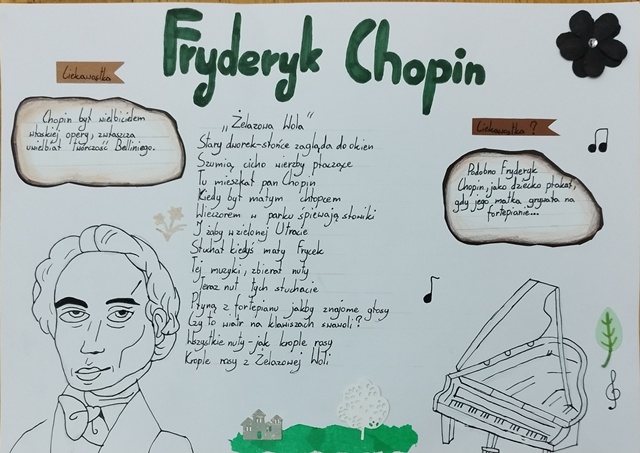 Fryderyk Chopin
Ciekawostka
Chopin był wielbicielem
włoskiej opery, zwłaszcza
uwielbiał twórczość Belliniego.
„Żelazowa Wola"
Stary dworek-słońce zagląda do okien
Szumią cicho wierzby płaczące
Tu mieszkał pan Chopin
Kiedy był małym chłopcem
Wieczorem w parku śpiewają słowiki
I żaby w zielonej Utracie
Słuchał kiedyś mały Frycek
Tej muzyki, zbierał nuty
Teraz nut tych słuchacie
Płyną z fortepianu jakby znajome głosy
Czy to wiatr na klawiszach swawoli?
Wszystkie nuty-jak krople rosy
Krople rosy z Żelazowej Woli
Ciekawostka ?
Podobno Fryderyk
Chopin, jako dziecko płakał,
gdy jego matka grywała na
fortepianie...